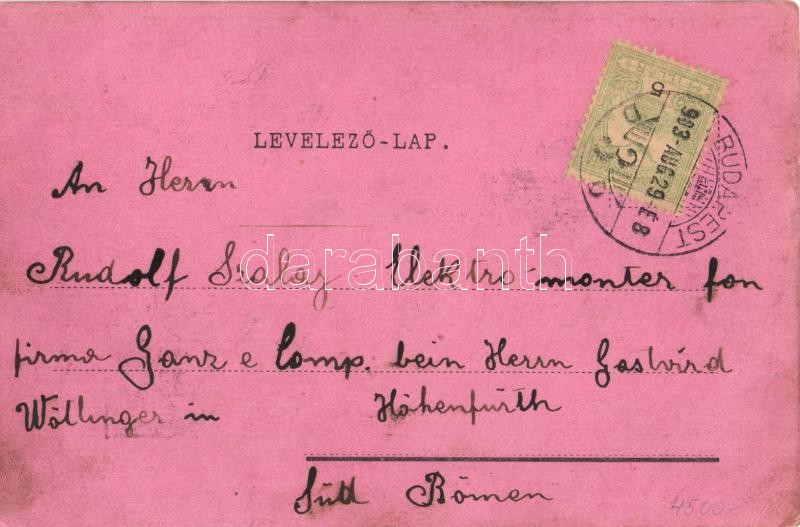 LEVELEZŐ-LAP.
An Herrn
Rudolf Szalay Elektro-monter fon
firma Ganz e Comp. bein Herrn Gastvird
Wöllinger in Höhenfurth
Süd Bömen
BUDAPEST
903-AUG29-E8
darabanth
4500